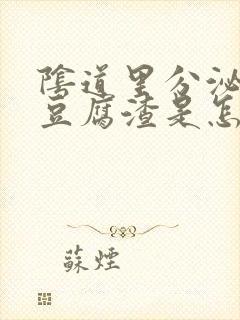 陰道里分泌
豆腐渣是怎
蘇煙